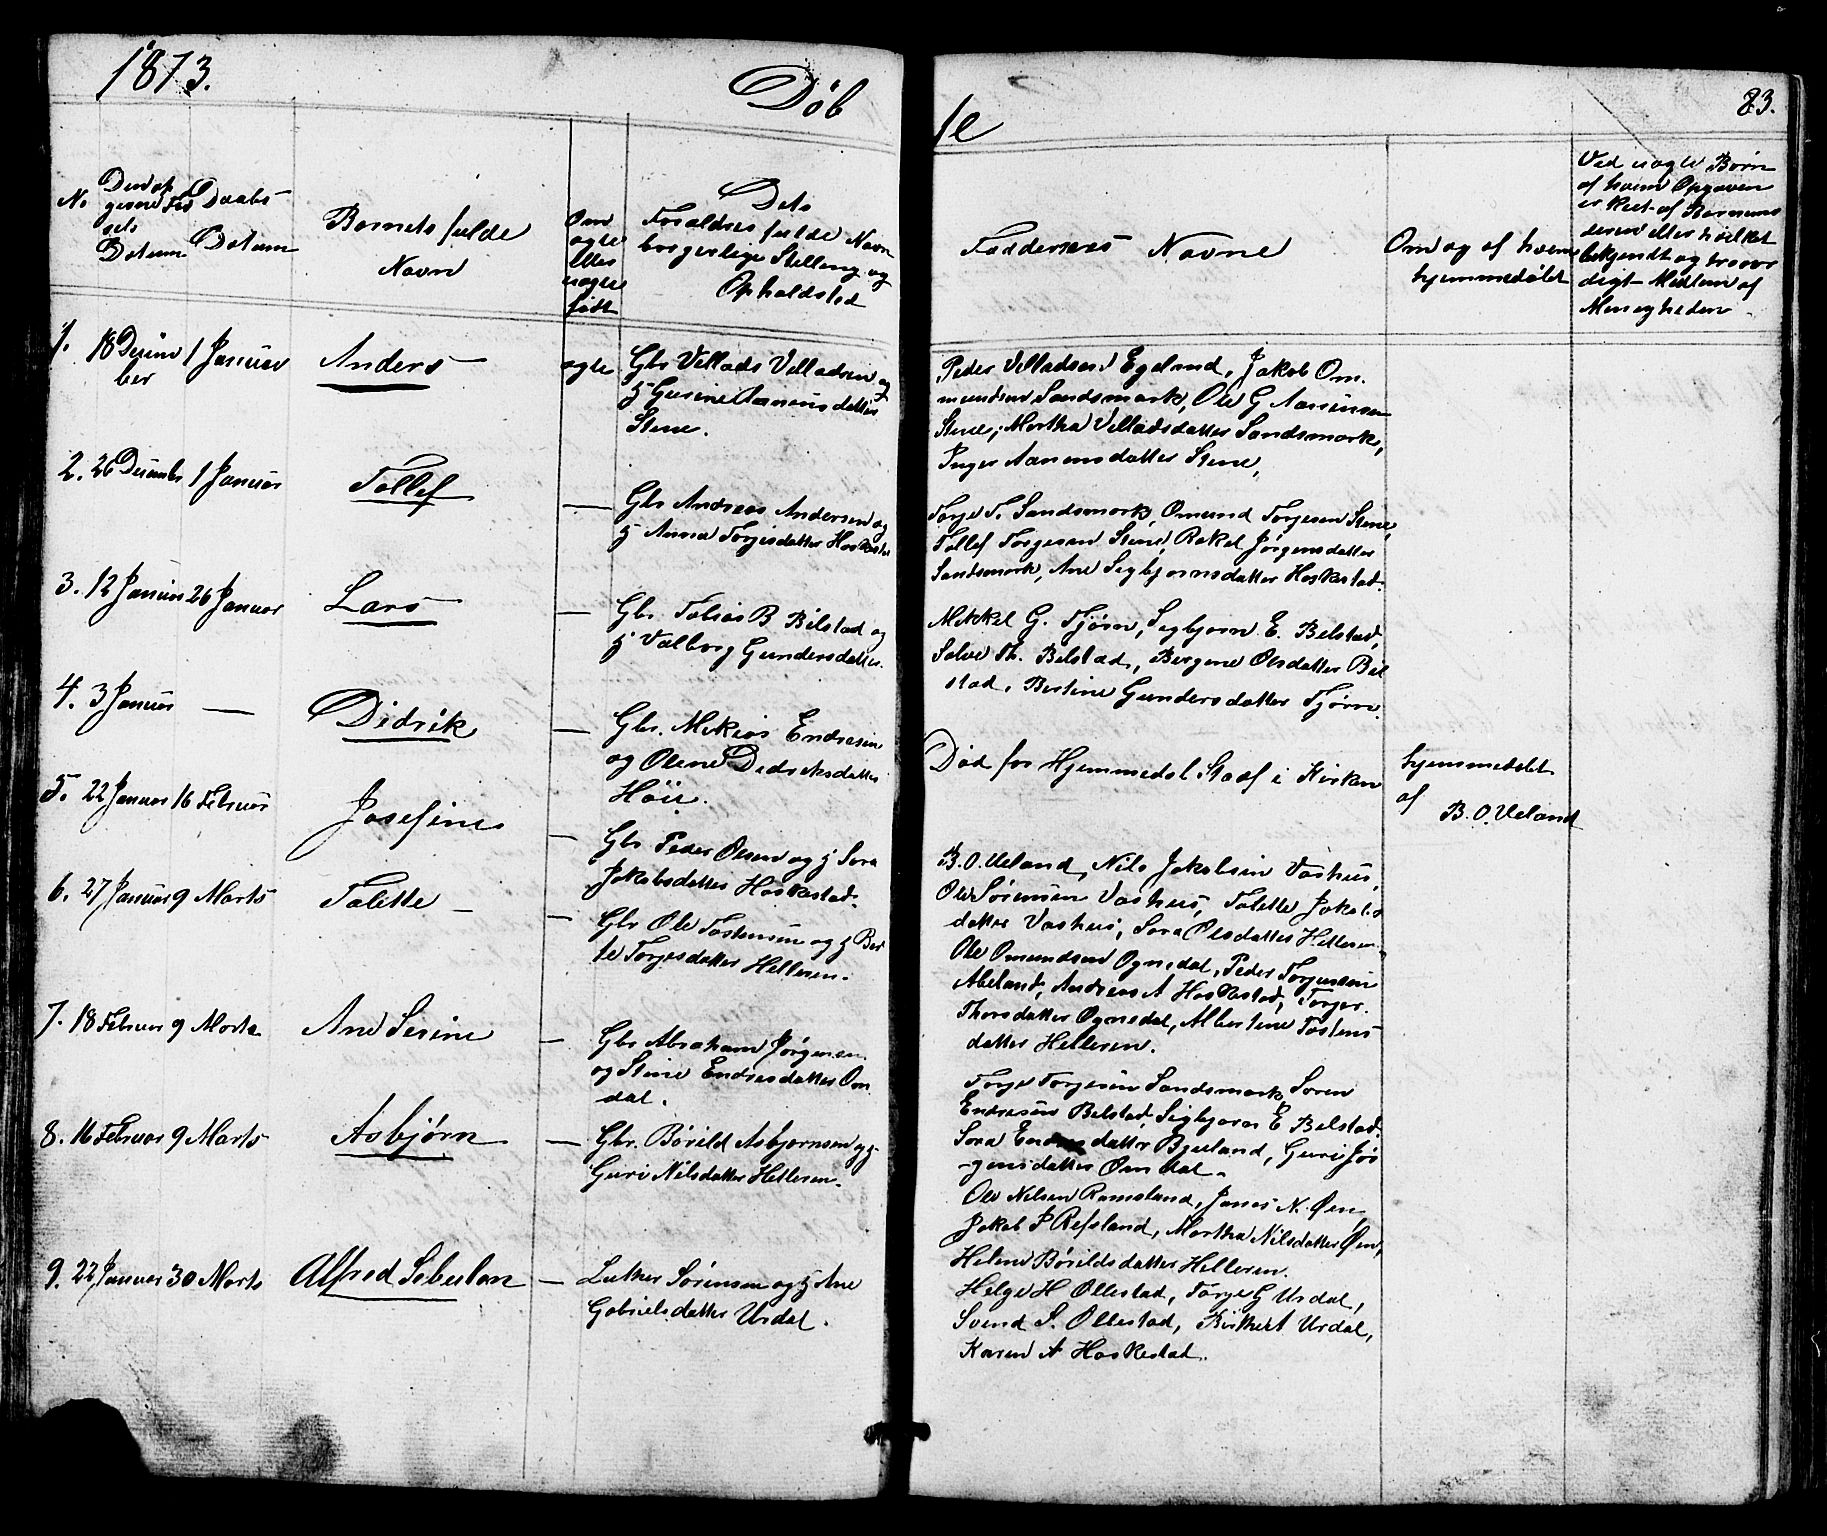 1873.
Døb
te
83.
No
Den op
givne Fød
sels
Datum
Daabs
Datum
Barnets fulde
Navn
Om
ægte
eller
uægte
født
Dets
Forældres fulde Navn
borgerlige Stilling og
Opholdsted
Faddernes Navne
Om og af hvem
hjemmedøbt
Ved uægte Børn
af hvem Opgaven
er skeet af Barnets
eller hvilket
bekjendt og trovær
digt Medlem af
Menigheden
1. 18 Decem
ber
1 Januar
Anders
ægte
Gbr Vellads Velladsen og
H Gurine Aanensdatter
Stene.
Peder Velladsen Egeland, Jakob Om
mundsen Sandsmark, Ole G Aanensen
Stene, Martha Velladsdatter Sandsmark,
Inger Aanensdatter Stene,
2. 26 Decembr 1 Januar
Tollef
— Gbr Andreas Andersen og
H Anna Torjesdatter Haskestad
Torje T. Sandsmark, Omund Torjesen Stene,
Tollef Torgesen Stene, Rakel Jørgensdatter
Sandsmark, Ane Segbjornsdatter Haskestad.
3. 12 Januar 26 Januar
Lars
— Gbr. Tobias B Bilstad og
H Valborg Gundersdatter.
Mikkel G. Tjørn, Segbjorn E. Belstad,
Salve Th. Belstad, Bergene Olsdatter Bel
stad, Bertine Gundersdatter Tjørn.
4. 3 Januar —
Didrik
— Gbr. Mekias Endresen
og Olene Dedreksdatter
Høie.
Død før Hjemmedøl Stadf i Kirken
hjemmedøbt
af B. O. Ueland
5. 22 Januar 16 Februar
Josefine
— Gbr Peder Olsen og H Sara
Jakobsdatter Haskestad.
B. O. Ueland, Nils Jakobsen Vashus,
Ole Sørensen Vashus, Talette Jakobs
datter Vashus, Sara Olsdatter Helleren
6. 27 Januar 9 Marts
Talette —
— Gbr Ole Tostensen og H Ber
te Torjesdatter Helleren.
Ole Omundsen Ognedal, Peder Torjesen
Abeland, Andreas A Haskestad, Torger
Thorsdatter Ognedal, Albertine Tostens
datter Helleren.
7. 18 Februar 9 Marts
Ane Serine
— Gbr Abraham Jørgensen
og Stine Endresdatter Om
dal.
Torje Torjesen Sandsmark, Soren
Endresen Belstad, Segbjorn E Belstad.
Sara Endresdatter Bjuland, Guri Jør
gensdatter Omdal.
8. 16 Februar 9 Marts
Asbjørn
— Gbr. Børild Asbjornsen og H
Guri Nilsdatter Helleren.
Ole Nilsen Ramsland, Janes N. Øen,
Jakob P Refsland, Martha Nilsdatter Øen,
Helene Børildsdatter Helleren.
9. 22 Januar 30 Marts
Alfred Sebulon
— Luther Sørensen og H Ane
Gabrielsdatter Urdal.
Helge H Ollestad, Torje G Urdal,
Svend S. Ollestad, Urdal,
Karen A Haskestad.